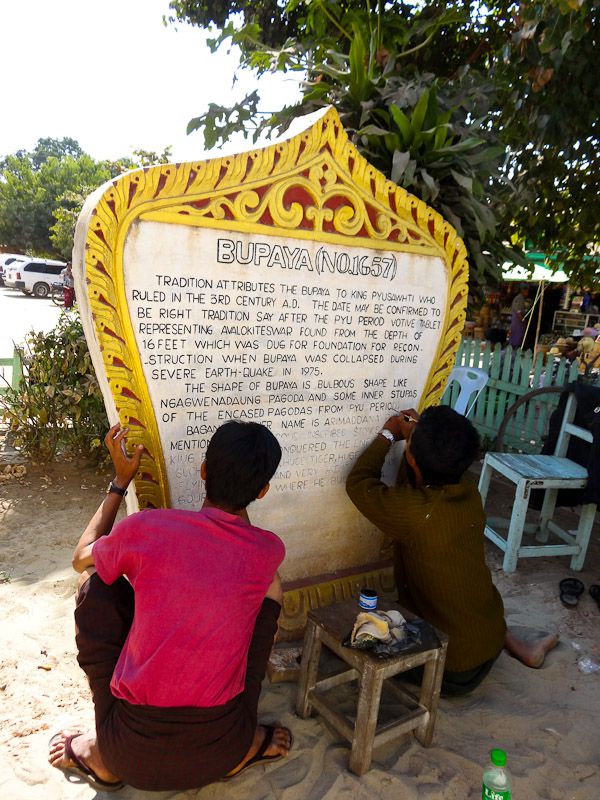 BUPAYA (NO.1657)
TRADITION ATTRIBUTES THE BUPAYA TO KING PYUSAWHTI WHO
RULED IN THE 3RD CENTURY A.D. THE DATE MAY BE CONFIRMED TO
BE RIGHT TRADITION SAY AFTER THE PYU PERIOD VOTIVE TABLET
REPRESENTING AVALOKITESWAR FOUND FROM THE DEPTH OF
16 FEET WHICH WAS DUG FOR FOUNDATION FOR RECON
-STRUCTION WHEN BUPAYA WAS COLLAPSED DURING
SEVERE EARTH-QUAKE IN 1975.
THE SHAPE OF BUPAYA IS BULBOUS SHAPE LIKE
NGAGWENADAUNG PAGODA AND SOME INNER STUPAS
OF THE ENCASED PAGODAS FROM PYU PERIOD
NAME IS
MENTION
KING
TIGER,
AND VERY
WHERE HE
Life